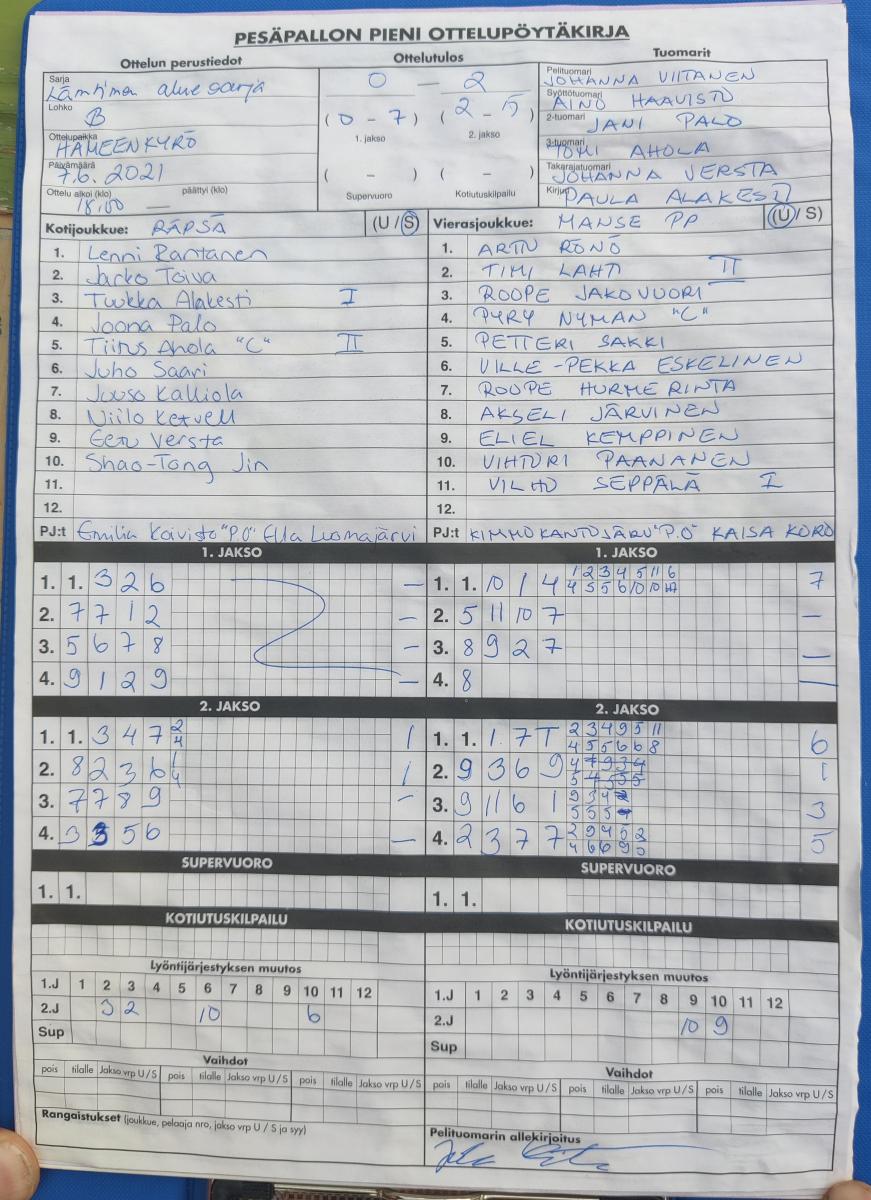 PESÄPALLON PIENI OTTELUPÖYTÄKIRJA
Ottelun perustiedot
Sarja
Läntinen aluesarja
Lohko
B
Ottelupaikka
HÄMEENKYRÖ
Päivämäärä
7.6.2021
Ottelu alkoi (klo) päättyi (klo)
18.00 —
Ottelutulos
0 — 2
(0 - 7) (2 - 15)
1. jakso 2. jakso
( - ) ( - )
Supervuoro Kotiutuskilpailu
Tuomarit
Pelituomari
JOHANNA VIITANEN
Syöttötuomari
AINO HAAVISTO
2-tuomari
JANI PALO
3-tuomari
TOMI AHOLA
Takarajatuomari
JOHANNA VERSTA
Kirjuri
PAULA ALAKESTI
Kotijoukkue: RÄPSÄ (U / S)
1. Lenni Rantanen
2. Jarko Toiva
3. Tuukka Alakesti I
4. Joona Palo
5. Tiitus Ahola "C" II
6. Juho Saari
7. Juuso Kalliola
8. Niilo Ketvell
9. Eetu Versta
10. Shao-Tong Jin
11.
12.
PJ:t Emilia Koivisto "P.O" Ella Luomajärvi
Vierasjoukkue: MANSE PP (U / S)
1. ARTTU RÖNÖ
2. TIMI LAHTI II
3. ROOPE JAKOVUORI
4. PYRY NYMAN "C"
5. PETTERI SAKKI
6. VILLE-PEKKA ESKELINEN
7. ROOPE HURMERINTA
8. AKSELI JÄRVINEN
9. ELIEL KEMPPINEN
10. VIHTORI PAANANEN
11. VILHO SEPPÄLÄ I
12.
PJ:t KIMMO KANTOJÄRVI "P.O" KAISA KORO
1. JAKSO
1. 1. 3 2 6 —
2. 7 7 1 2 —
3. 5 6 7 8 —
4. 9 1 2 9 —
2. JAKSO
1. 1. 3 4 7 2 1
4
2. 8 2 3 6 1 1
4
3. 7 7 8 9 —
4. 3 3 5 6 —
SUPERVUORO
1. 1.
KOTIUTUSKILPAILU
Lyöntijärjestyksen muutos
1.J 1 2 3 4 5 6 7 8 9 10 11 12
2.J 3 2 10 6
Sup
Vaihdot
pois tilalle Jakso vrp U / S pois tilalle Jakso vrp U / S pois tilalle Jakso vrp U / S
Rangaistukset (joukkue, pelaaja nro, jakso vrp U / S ja syy)
1. JAKSO
1. 1. 10 1 4 1 2 3 4 5 11 6 7
4 5 5 6 10 10
2. 5 11 10 7 —
3. 8 9 2 7 —
4. 8 —
2. JAKSO
1. 1. 1 7 T 2 3 4 9 5 11 6
4 5 5 6 6 8
2. 9 3 6 9 1
3. 9 11 6 1 9 3 4 3
5 5 5
4. 2 3 7 7 2 9 4 5
4 6 6 9
SUPERVUORO
1. 1.
KOTIUTUSKILPAILU
Lyöntijärjestyksen muutos
1.J 1 2 3 4 5 6 7 8 9 10 11 12
2.J 10 9
Sup
Vaihdot
pois tilalle Jakso vrp U / S pois tilalle Jakso vrp U / S pois tilalle Jakso vrp U / S
Pelituomarin allekirjoitus